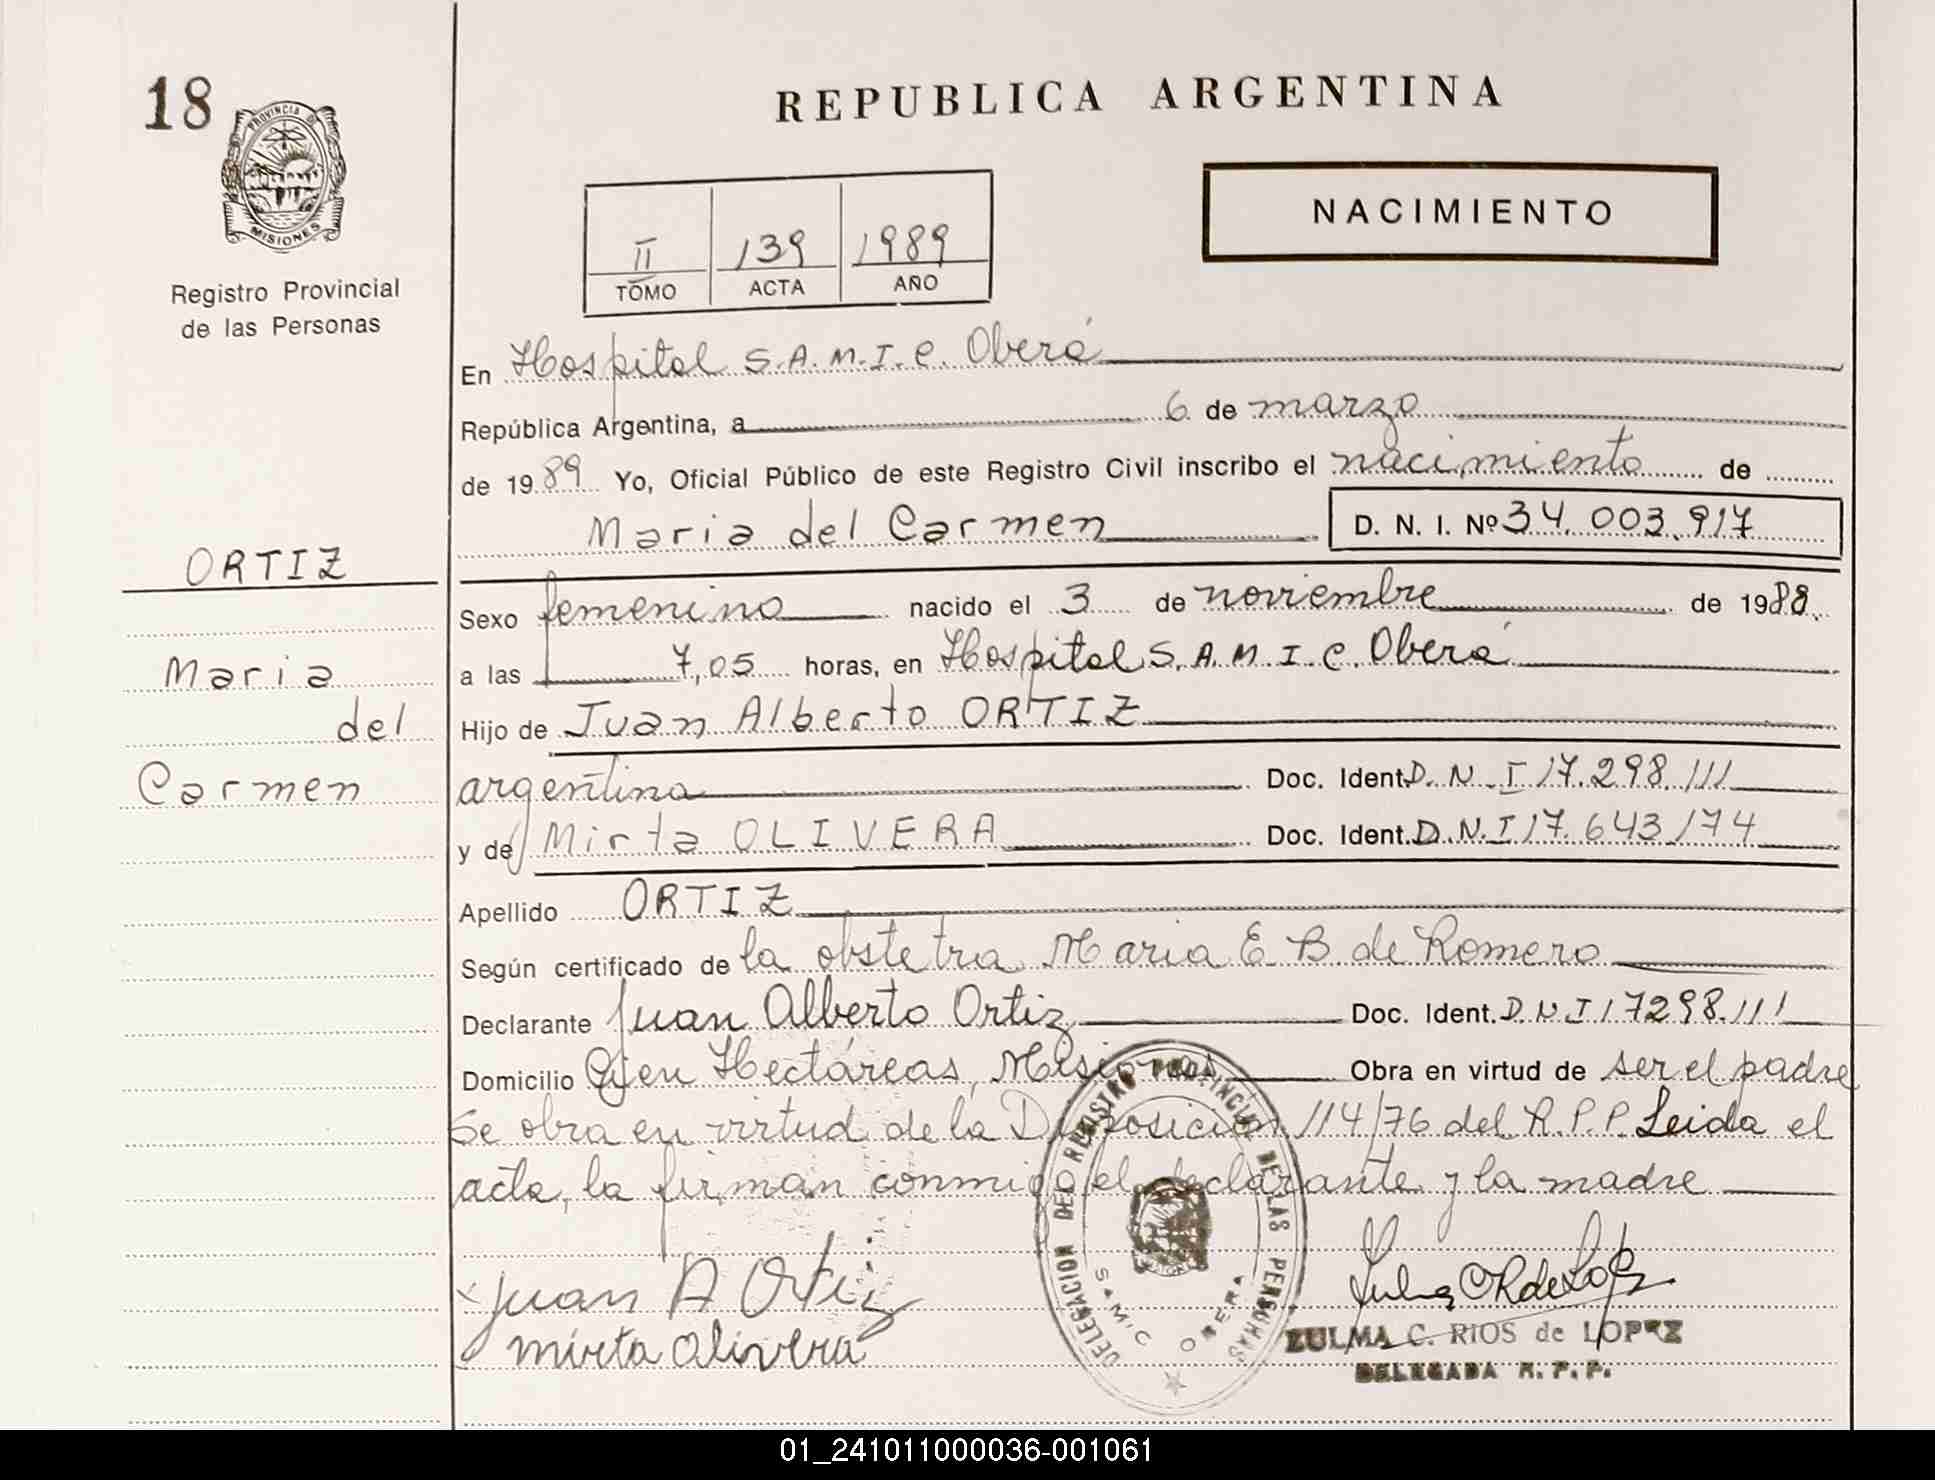 18
PROVINCIA DE
MISIONES
Registro Provincial
de las Personas
REPUBLICA ARGENTINA
II 139 1989
TOMO ACTA AÑO
NACIMIENTO
En Hospital S.A.M.I.C. Oberá
República Argentina, a 6 de marzo
de 1989 Yo, Oficial Público de este Registro Civil inscribo el nacimiento de
Maria del Carmen D. N. I. Nº 34.003.917
ORTIZ
Maria
del
Carmen
Sexo femenino nacido el 3 de noviembre de 1988
a las 7,05 horas, en Hospital S.A.M.I.C. Oberá
Hijo de Juan Alberto ORTIZ
argentina Doc. Ident. D.N.I 17.298.111
y de Mirta OLIVERA Doc. Ident. D.N.I 17.643174
Apellido ORTIZ
Según certificado de la obstetria Maria E B de Romero
Declarante Juan Alberto Ortiz Doc. Ident. D.N.I 17298.111
Domicilio Cien Hectáreas, Misiones Obra en virtud de ser el padre
Se obra en virtud de la Disposición 114/76 del R.P.P. Leida el
acta, la firman conmigo el declarante y la madre
Juan A Ortiz
mirta Olivera
DELEGACION DEL REGISTRO PROVINCIAL DE LAS PERSONAS
SAMIC OBERA
ZULMA C. RIOS de LOPEZ
DELEGADA R. P. P.
01_241011000036-001061